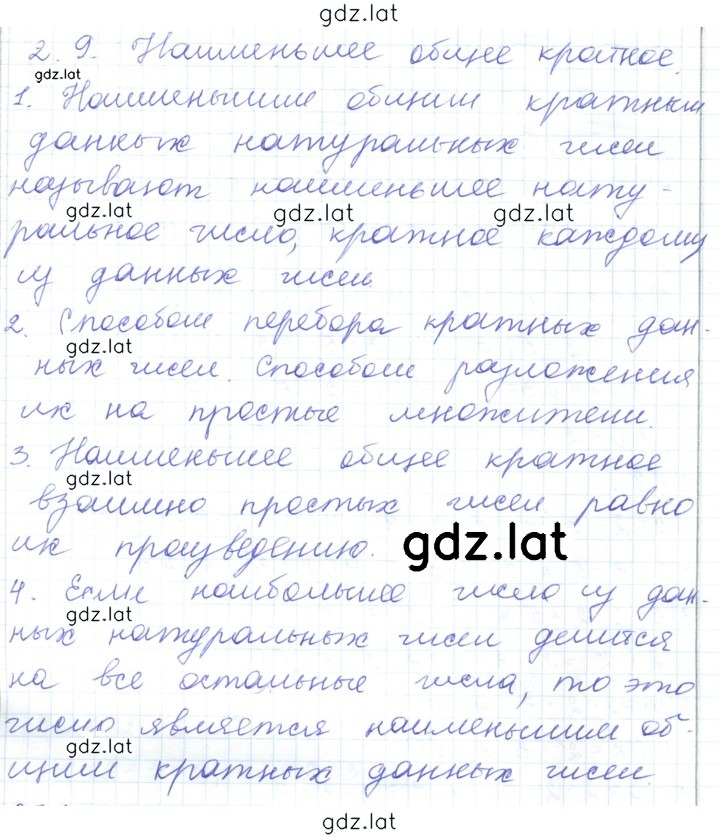 gdz.lat
2. 9. Наименьшее общее кратное.
gdz.lat
1. Наименьшим общим кратным
данных натуральных чисел
называют наименьшее нату-
gdz.lat gdz.lat gdz.lat
ральное число, кратное каждому
из данных чисел.
2. Способом перебора кратных дан-
gdz.lat
ных чисел. Способом разложения
их на простые множители.
3. Наименьшее общее кратное
gdz.lat
взаимно простых чисел равно
их произведению.
gdz.lat
4. Если наибольшее число из дан-
gdz.lat
ных натуральных чисел делится
на все остальные числа, то это
число является наименьшим об-
gdz.lat
щим кратных данных чисел.
gdz.lat